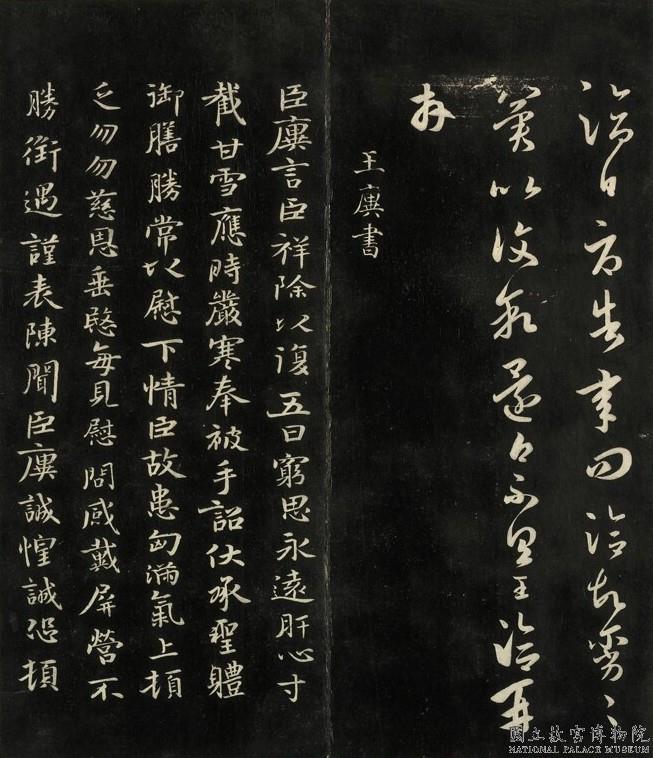 洽白告洽故劣〻
以還白不具王洽再
拜
王廙書
臣廙言臣祥除以復五日窮思永遠肝心寸
截甘雪應時嚴寒奉被手詔伏承聖體
御膳勝常以慰下情臣故患匈滿氣上頓
乏勿勿慈恩垂愍每見慰問感戴屏營不
勝銜遇謹表陳聞臣廙誠惶誠恐頓
國立故宮博物院
NATIONAL PALACE MUSEUM